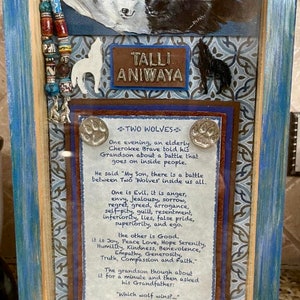 TALLI
ANIWAYA
TWO WOLVES
One evening, an elderly
Cherokee Brave told his
Grandson about a battle that
goes on inside people.
He said "My Son, there is a battle
between Two 'Wolves' inside us all.
One is Evil, it is anger,
envy, jealousy, sorrow,
regret, greed, arrogance,
self-pity, guilt, resentment,
inferiority, lies, false pride,
superiority, and ego.
the other is Good.
it is Joy, Peace Love, Hope Serenity,
Humility, Kindness, Benevolence,
Empathy, Generosity,
Truth, Compassion and Faith."
The grandson though about
it for a minute and then asked
his Grandfather:
"Which wolf wins?..."